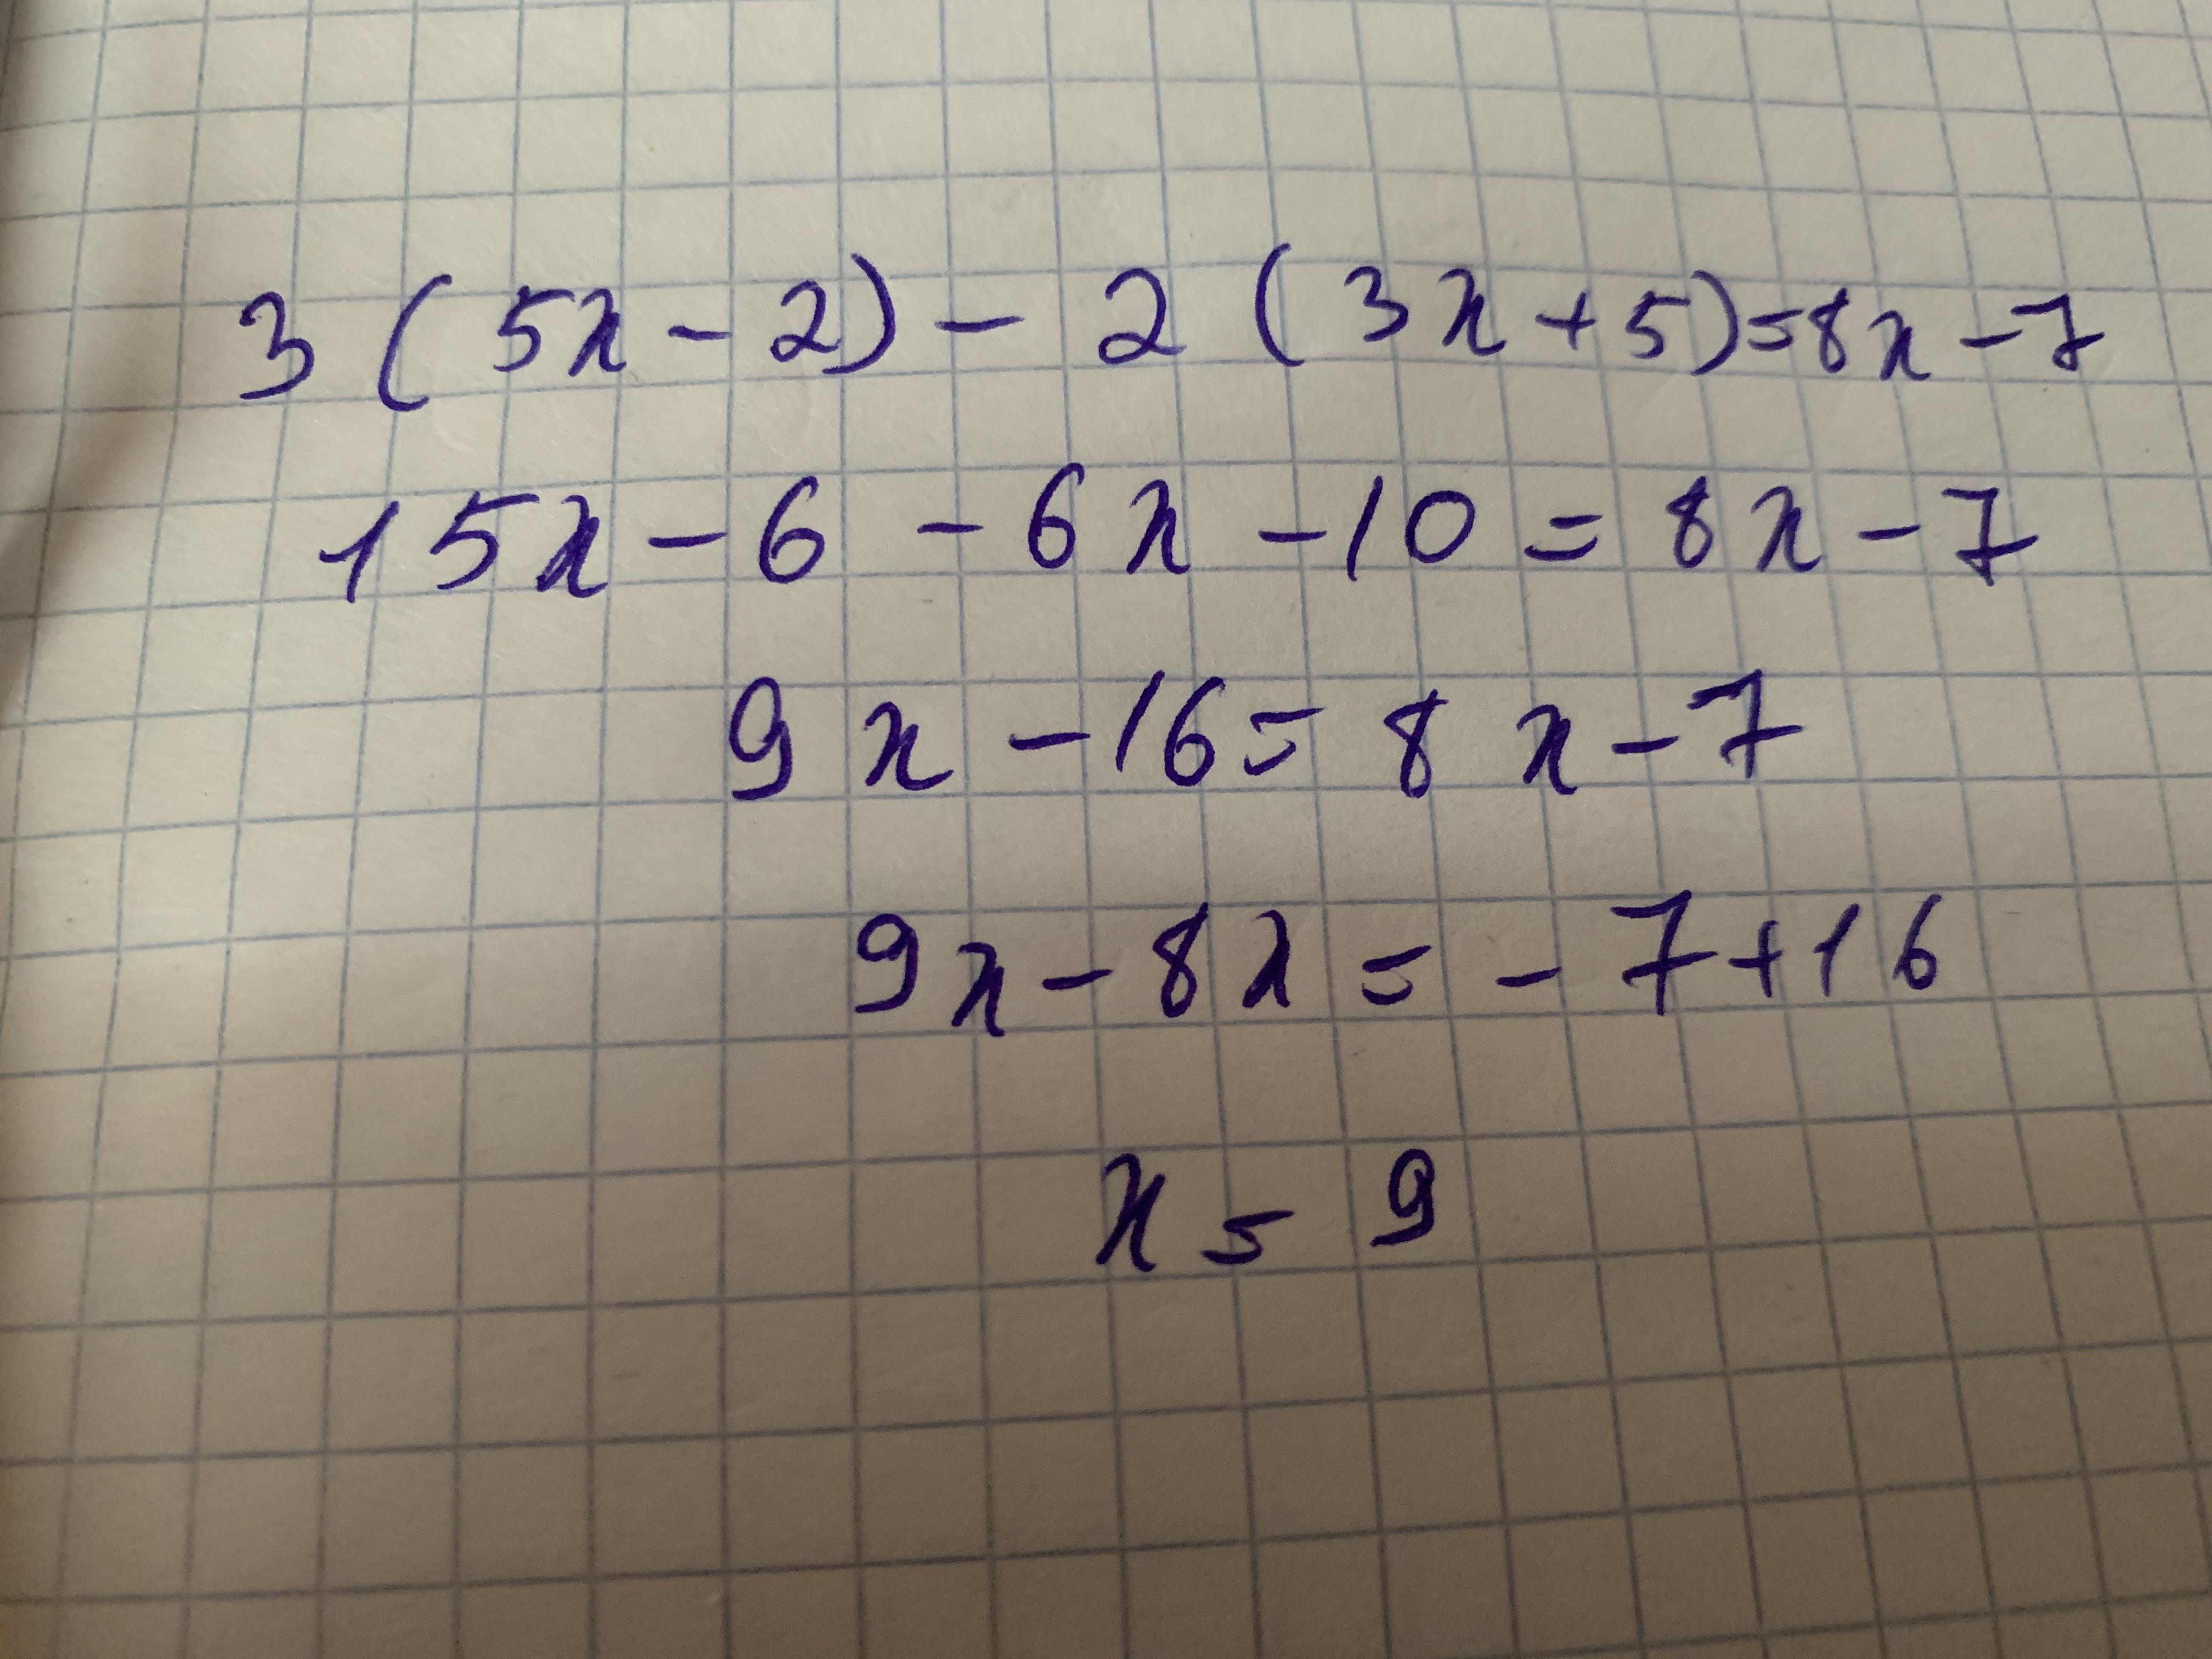 3(5x-2)-2(3x+5)=8x-7
15x-6-6x-10=8x-7
9x-16=8x-7
9x-8x=-7+16
x=9